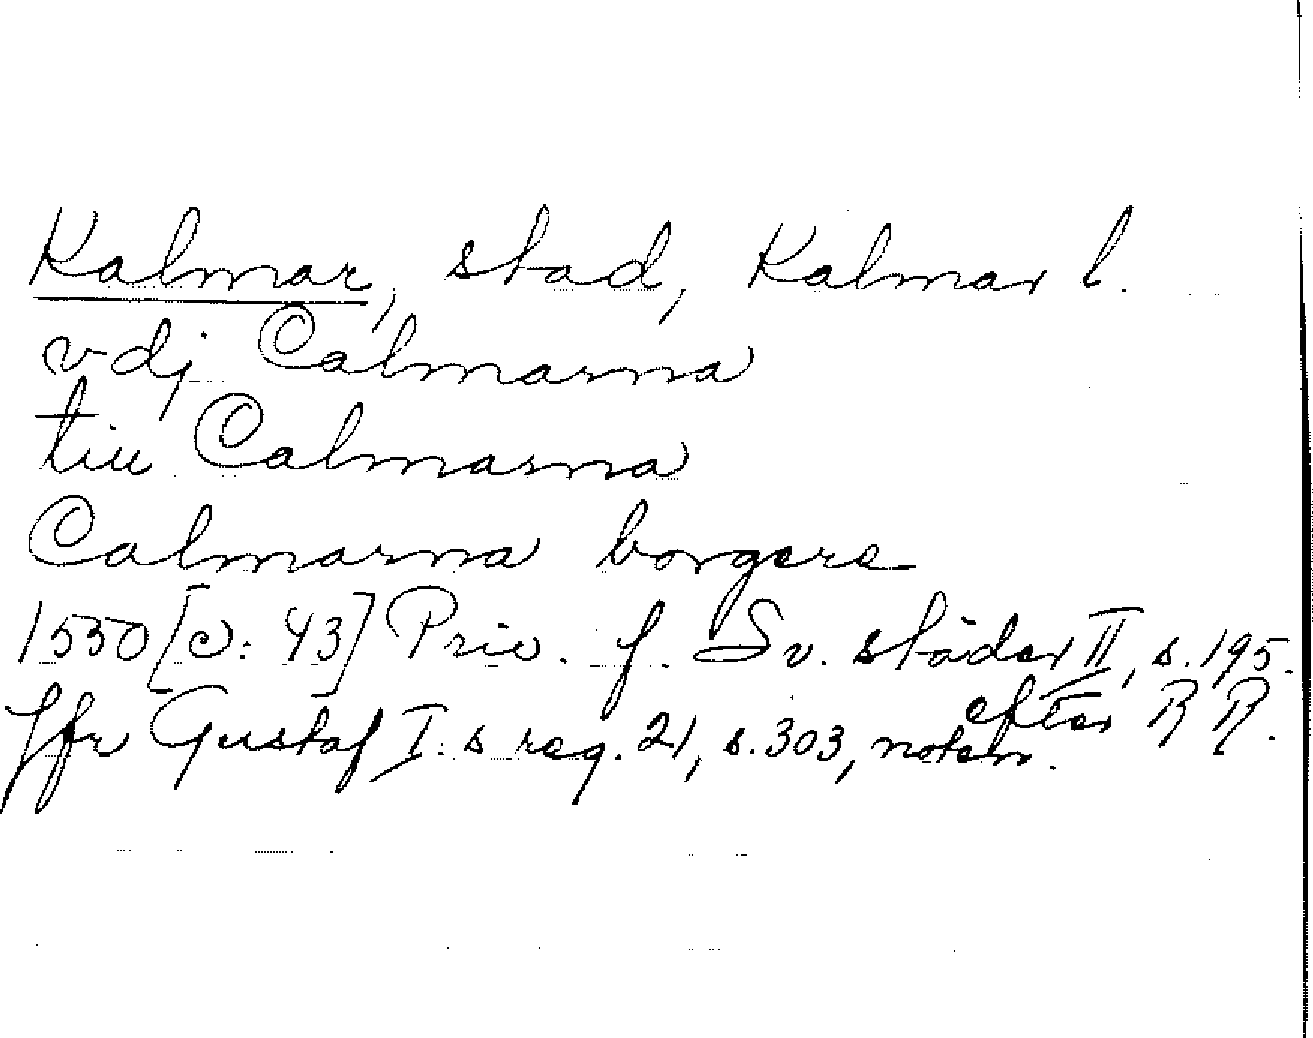 Kalmar, stad, Kalmar l.
vdj Calmarna
till Calmarna
Calmarna borgere
1550 [ɔ: 43] Priv. f. Sv. städer II, s. 195.
efter RR.
Jfr Gustaf I:s reg. 21, s. 303, noten.